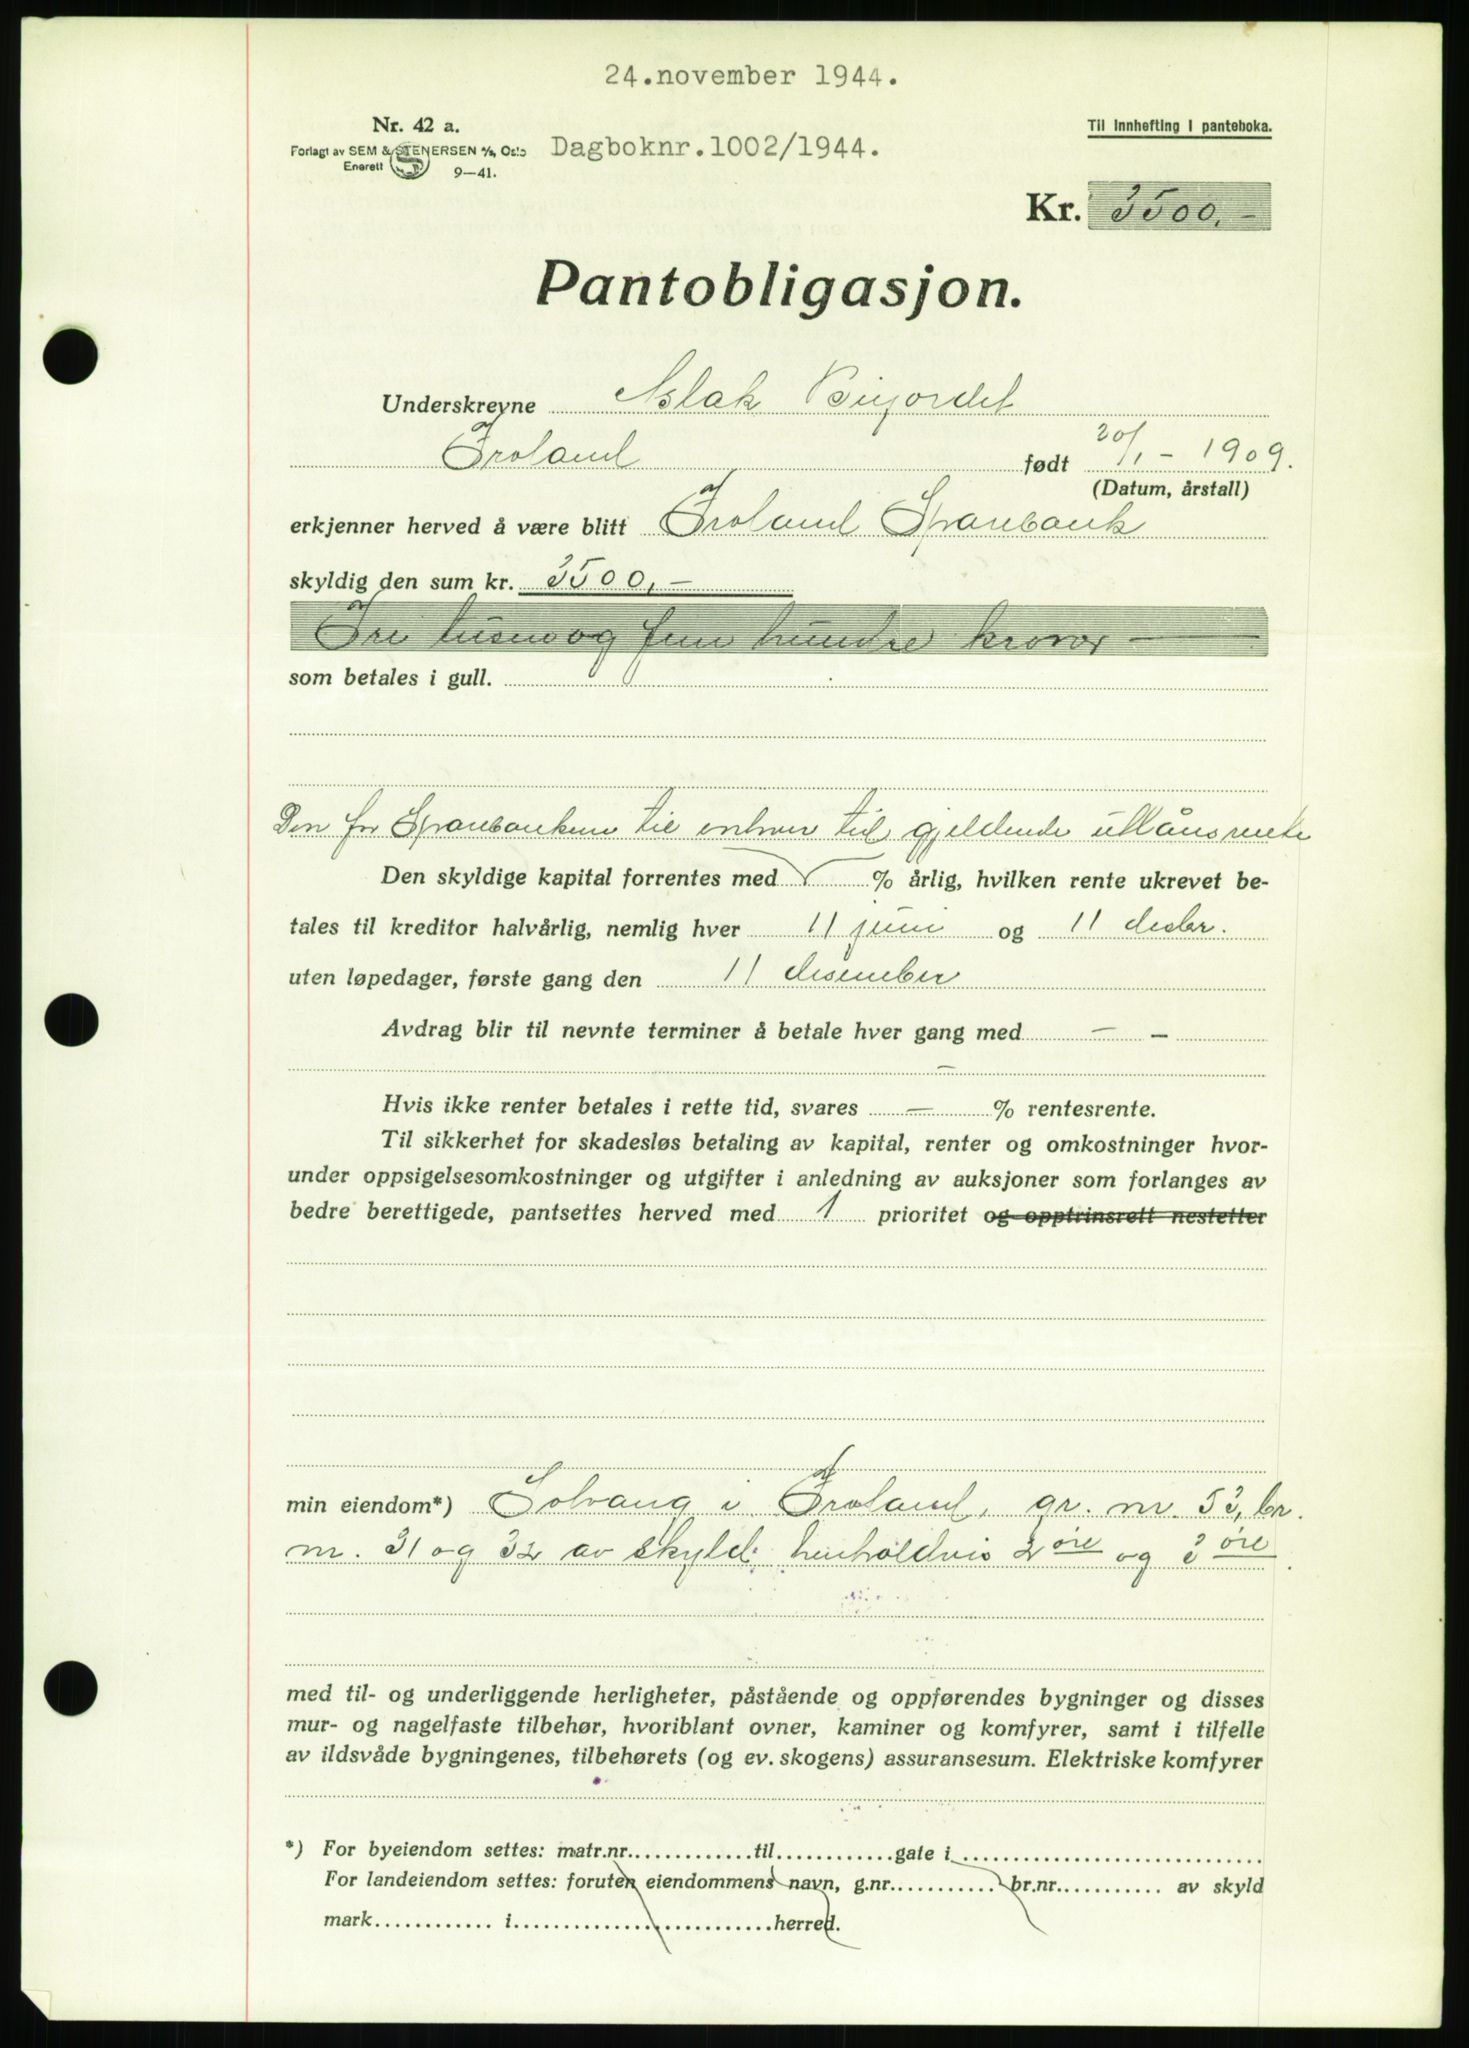 24.november 1944.
Nr. 42 a.
Til innhefting i panteboka.
Forlagt av SEM & STENERSEN A/S, Oslo
Dagboknr.1002/1944.
Enerett
9—41.
Kr. 3500,-
Pantobligasjon.
Underskrevne Aslak
Froland født 20/1 - 1909.
(Datum, årstall)
erkjenner herved å være blitt Froland Sparebank
skyldig den sum kr. 3500,-
Tre tusen og fem hundre kroner —
som betales i gull.
Den for Sparebanken til enhver tid gjeldende utlånsrente
Den skyldige kapital forrentes med % årlig, hvilken rente ukrevet be-
tales til kreditor halvårlig, nemlig hver 11 juni og 11 desbr.
uten løpedager, første gang den 11 desember
Avdrag blir til nevnte terminer å betale hver gang med — —
—
Hvis ikke renter betales i rette tid, svares — % rentesrente.
Til sikkerhet for skadesløs betaling av kapital, renter og omkostninger hvor-
under oppsigelsesomkostninger og utgifter i anledning av auksjoner som forlanges av
bedre berettigede, pantsettes herved med 1 prioritet og opptrinsrett nestetter
min eiendom*) Solvang i Froland, gr. nr. 53, br.
nr. 31 og 32 av skyld henholdvis 2 øre og 3 øre.
med til- og underliggende herligheter, påstående og oppførendes bygninger og disses
mur- og nagelfaste tilbehør, hvoriblant ovner, kaminer og komfyrer, samt i tilfelle
av ildsvåde bygningenes, tilbehørets (og ev. skogens) assuransesum. Elektriske komfyrer
*) For byeiendom settes: matr.nr.............til............gate i..............................
For landeiendom settes: foruten eiendommens navn, g.nr........... br.nr........... av skyld
mark............ i..........................herred.